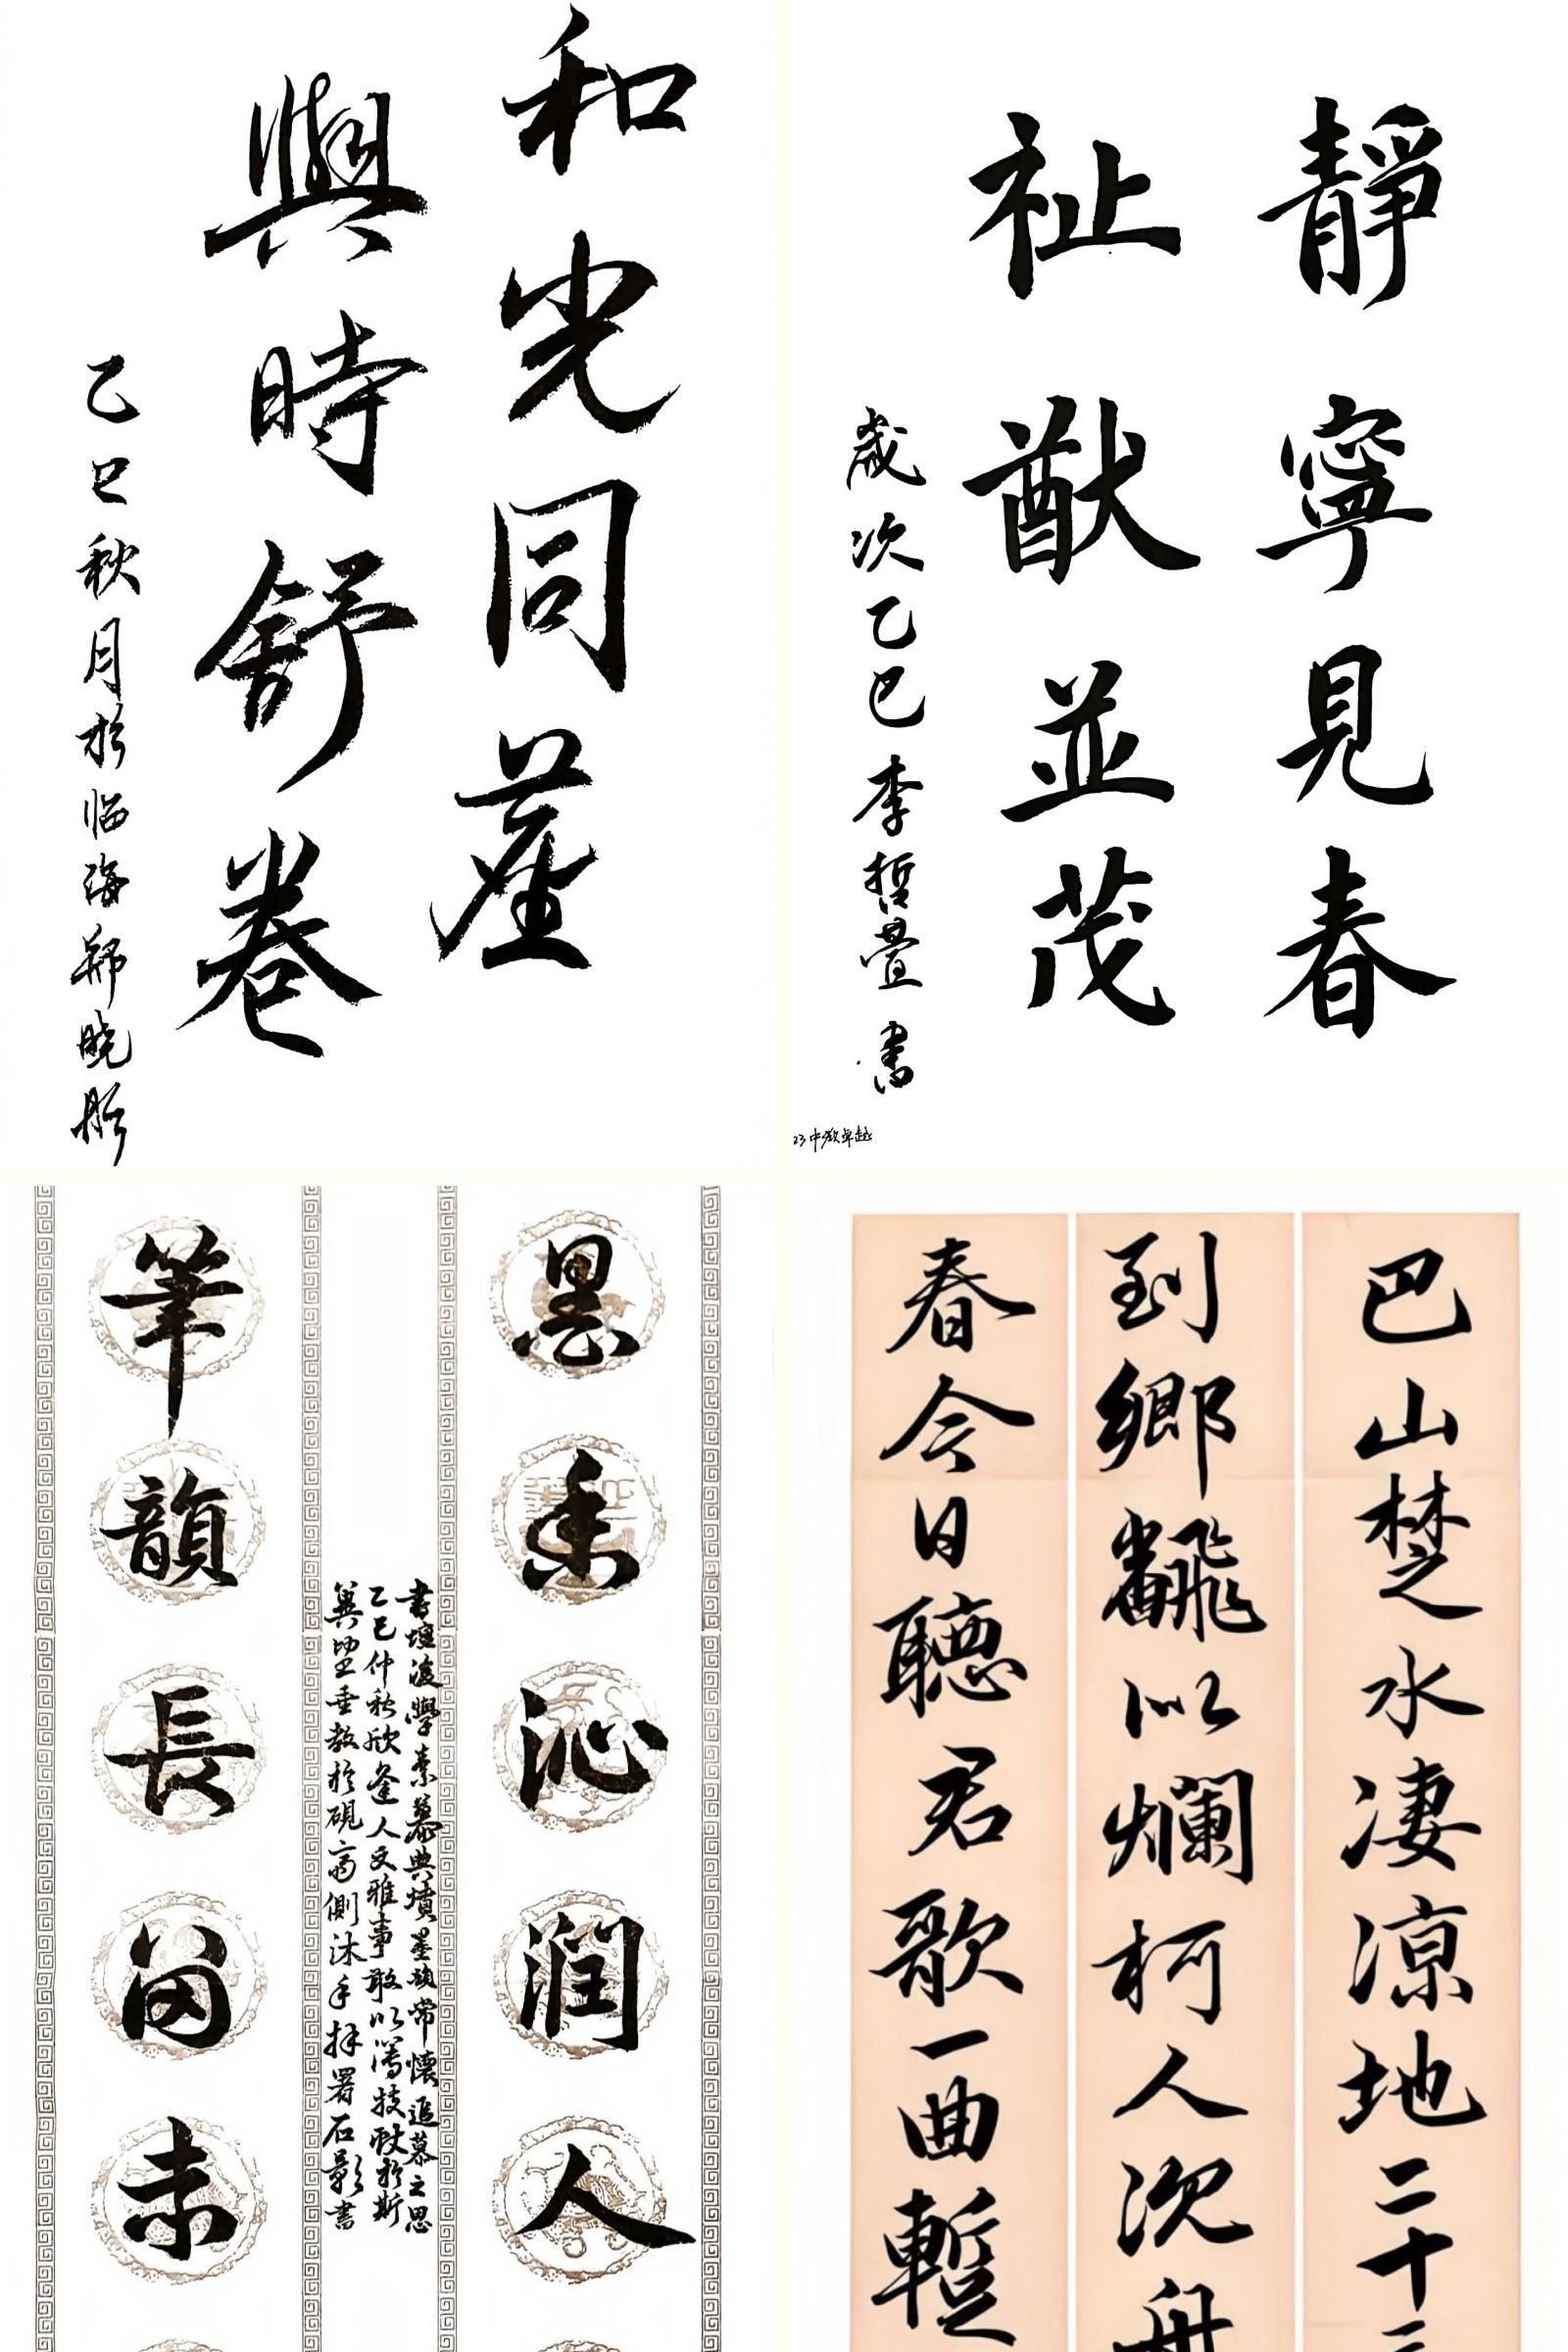 和光同塵
與時舒卷
乙巳秋月於临海郑晓彤
靜寧見春
祉猷並茂
歲次乙巳李哲疊書
23中数卓越
墨香沁潤人
筆韻長留未
書壇後學素慕典墳墨韻常懷追慕之思
乙巳仲秋欣逢人文雅事敢以薄技献於斯
冀望垂教於硯斋側沐手拜署石影書
巴山楚水凄涼地二十三
到鄉翻以爛柯人沉舟
春今日聽君歌一曲暫